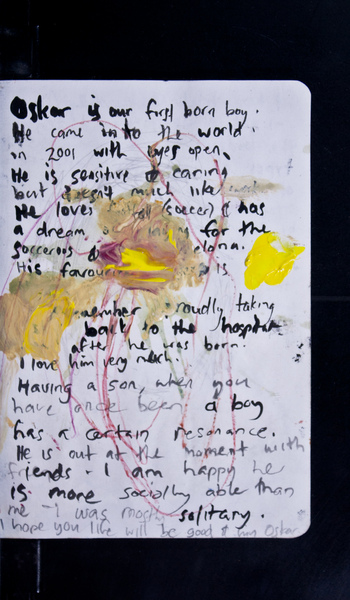 Oskar is our first born boy.
He came into the world.
in 2001 with eyes open.
He is sensitive & caring
but doesn't much like
He loves (soccer) & has
a dream for the
sorcerous
His is
proudly taking
back to the hospital
after he was born.
I love him very much.
Having a son, when you
have once been a boy
has a certain resonance.
He is out at the moment with
friends - I am happy he
is more socially able than
me - I was mostly solitary.
I hope your life will be good & my Oskar